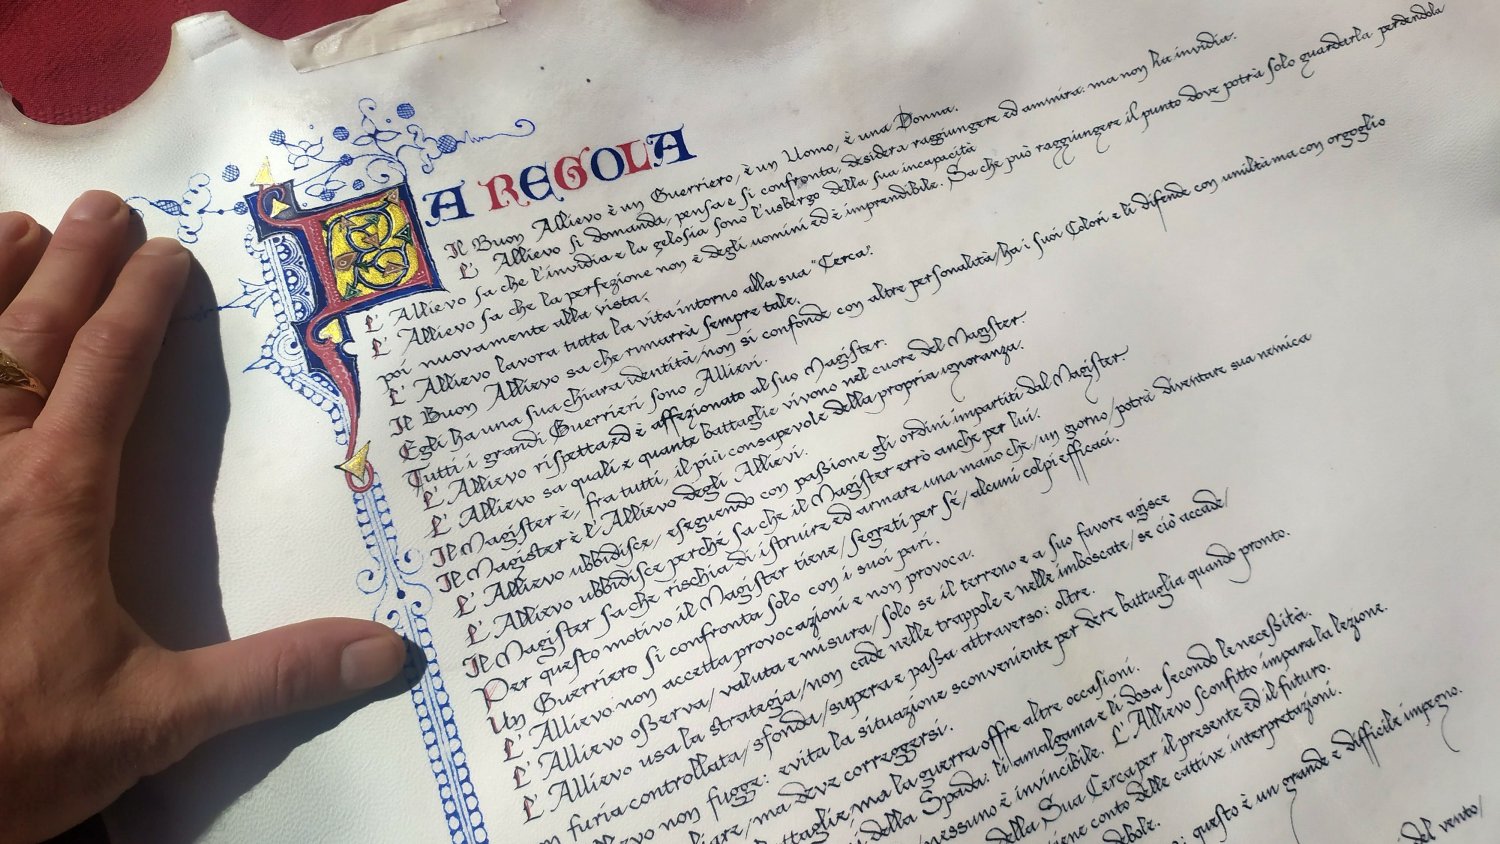 LA REGOLA
Il Buon Allievo è un Guerriero, è un Uomo, è una Donna.
L' Allievo si domanda, pensa e si confronta, desidera raggiungere ed ammira: ma non ha invidia.
L' Allievo sa che l'invidia e la gelosia sono l'usbergo della sua incapacità
L' Allievo sa che la perfezione non è degli uomini ed è imprendibile. Sa che può raggiungere il punto dove potrà solo guardarla perdendola
poi nuovamente alla vista.
L' Allievo lavora tutta la vita intorno alla sua "Cerca".
Il Buon Allievo sa che rimarrà sempre tale.
Egli ha una sua chiara identità/non si confonde con altre personalità/ha i suoi Colori e li difende con umiltà ma con orgoglio
Tutti i grandi Guerrieri sono Allievi.
L' Allievo rispetta ed è affezionato al suo Magister.
L' Allievo sa quali e quante battaglie vivono nel cuore del Magister.
Il Magister è, fra tutti, il più consapevole della propria ignoranza.
Il Magister è l'Allievo degli Allievi.
L' Allievo ubbidisce, eseguendo con passione gli ordini impartiti dal Magister.
L' Allievo ubbidisce perché sa che il Magister errò anche per lui.
Il Magister sa che rischia di istruire ed armare una mano che/un giorno/potrà diventare sua nemica
Per questo motivo il Magister tiene/segreti per sé/alcuni colpi efficaci.
Un Guerriero si confronta solo con i suoi pari.
L' Allievo non accetta provocazioni e non provoca.
L' Allievo osserva/valuta e misura/solo se il terreno è a suo favore agisce
L' Allievo usa la strategia/non cade nelle trappole e nelle imboscate/se ciò accade/
furia controllata/sfonda/supera e passa attraverso: oltre.
non fugge: evita la situazione sconveniente per dere battaglia quando pronto.
ma deve correggersi.
ma la guerra offre altre occasioni.
della Spada: li amalgama e li dosa secondo le necessità.
nessuno è invincibile. L'Allievo sconfitto impara la lezione.
della Sua Cerca per il presente ed il futuro.
tiene conto delle cattive interpretazioni.
debole.
questo è un grande e difficile impegno.
del vento/